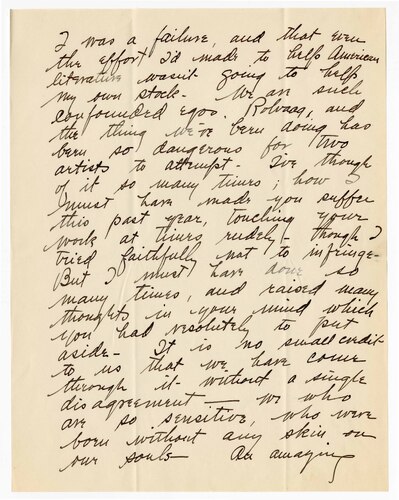 I was a failure, and that even
the effort I'd made to help American
literature wasn't going to help
my own stock - We are such
confounded egos. Rolvaag, and
the thing we've been doing has
been so dangerous for two
artists to attempt - I've though
of it so many times; how I
must have made you suffer
this past year, touching your
work at times rudely - though I
tried faithfully not to infringe -
But I must have done so
many times, and raised many
thoughts in your mind which
you had resolutely to put
aside - It is no small credit
to us that we have come
through it without a single
disagreement - we who
are so sensitive, who were
born without any skin on
our souls - An amazing